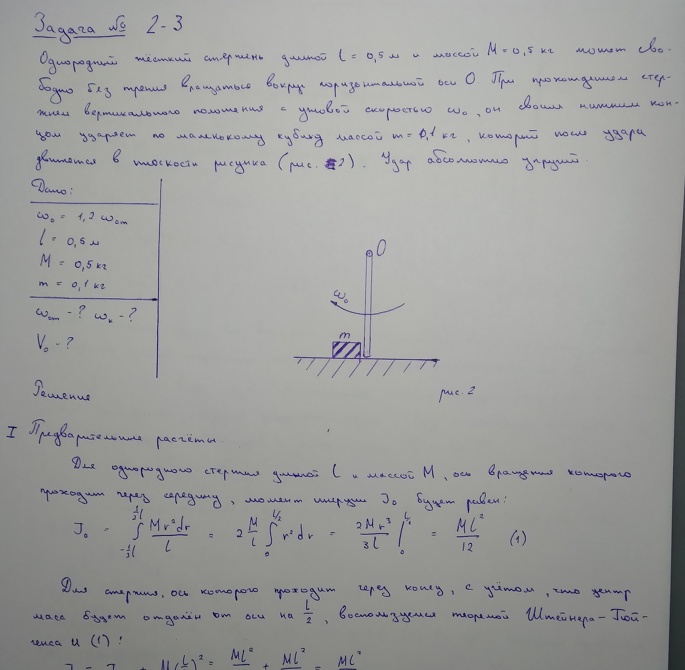 Задача № 2-3
Однородный жёсткий стержень длиной l = 0,5 м и массой M = 0,5 кг может сво-
бодно без трения вращаться вокруг горизонтальной оси O. При прохождении стер-
жнем вертикального положения с угловой скоростью ω₀, он своим нижним кон-
цом ударяет по маленькому кубику массой m = 0,1 кг, который после удара
движется в плоскости рисунка (рис. 2). Удар абсолютно упругий.
Дано:
ω₀ = 1,2 ωₒₘ
l = 0,5 м
M = 0,5 кг
m = 0,1 кг
ωₒₘ - ? ωₖ - ?
V₀ - ?
O
ω₀
m
рис. 2
Решение
I Предварительные расчёты.
Для однородного стержня длиной l и массой M, ось вращения которого
проходит через середину, момент инерции J₀ будет равен:
J₀ = ∫_{-½l}^{½l} Mr²dr/l = 2 M/l ∫_0^{l/2} r²dr = 2Mr³/3l |_0^{l/2} = Ml²/12 (1)
Для стержня, ось которого проходит через конец, с учётом, что центр
масс будет отдалён от оси на l/2, воспользуемся теоремой Штейнера-Гюй-
генса и (1):